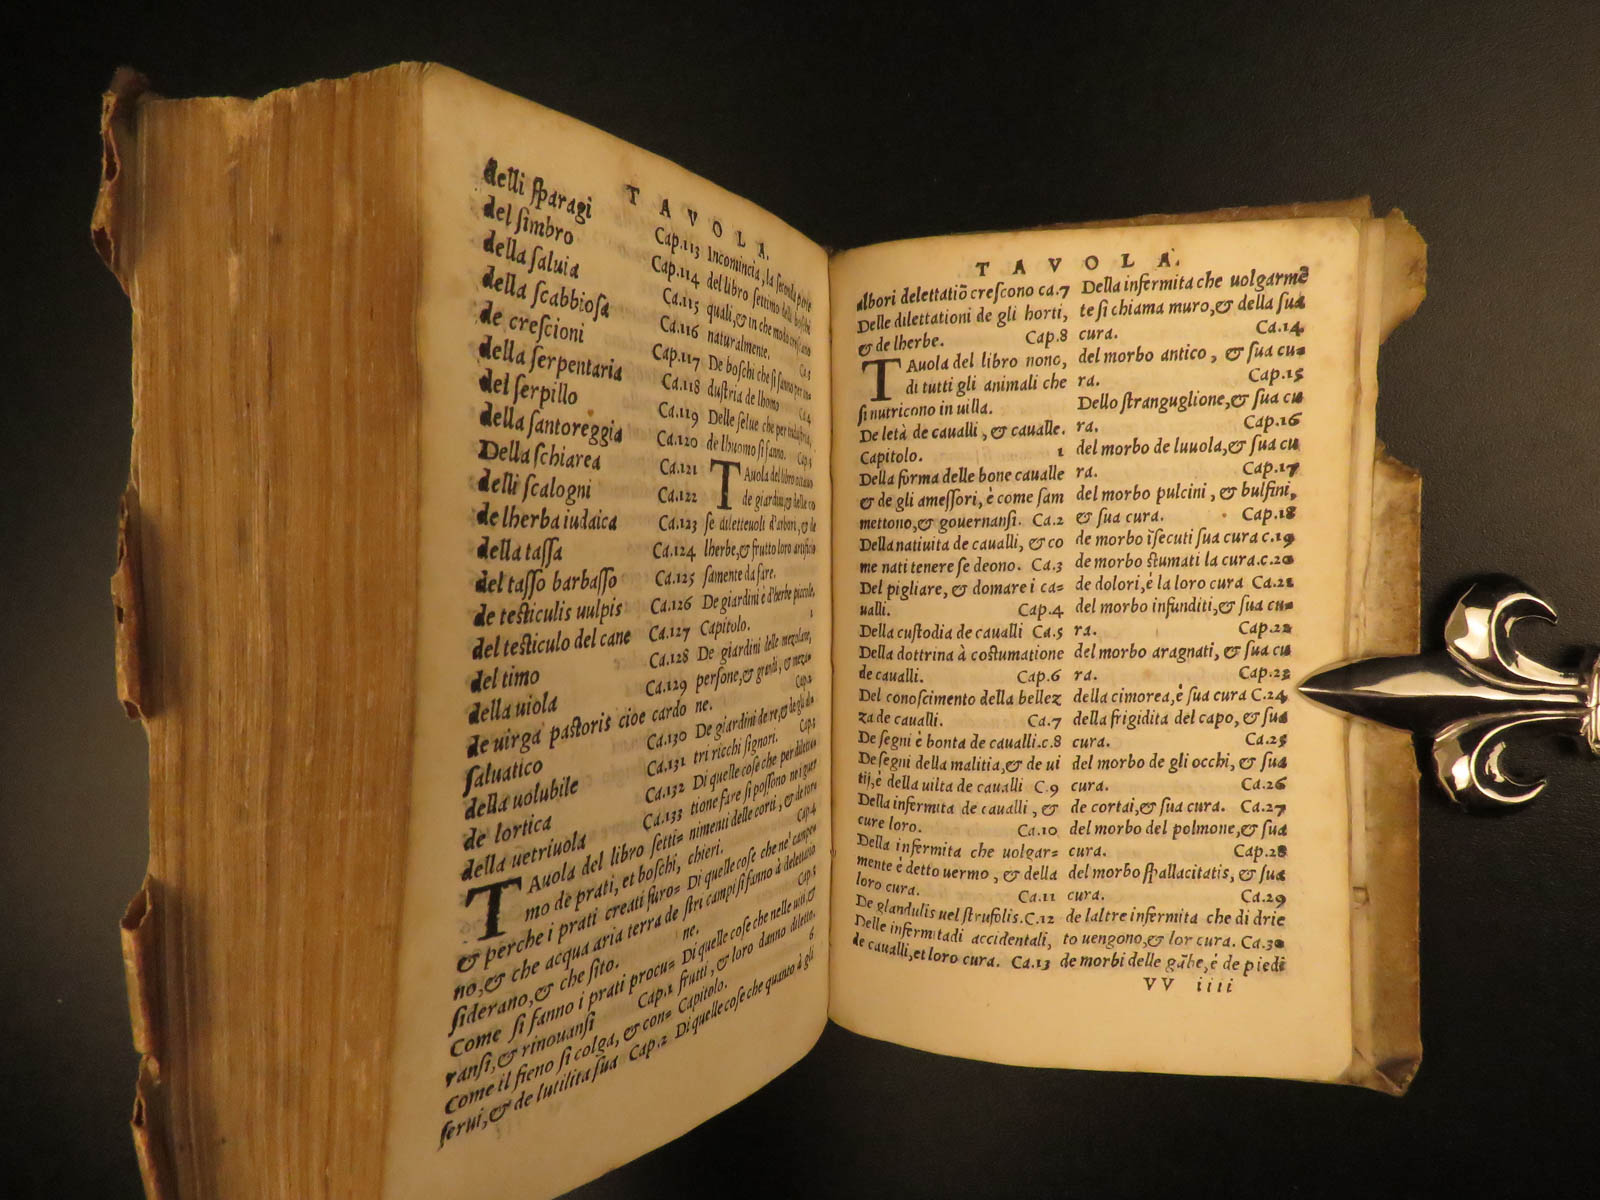 TAVOLA.
delli sparagi Cap.113
del simbro Cap.114
della saluia Ca.115
della scabbiosa Ca.116
de crescioni Cap.117
della serpentaria Ca.118
del serpillo Ca.119
della santoreggia Ca.120
Della schiarea Ca.121
delli scalogni Ca.122
de lherba iudaica Ca.123
della tassa Ca.124
del tasso barbasso Ca.125
de testiculis uulpis Ca.126
del testiculo del cane Ca.127
del timo Ca.128
della uiola Ca.129
de uirga pastoris cioe cardo
saluatico Ca.130
della uolubile Ca.131
de lortica Ca.132
della uetriuola Ca.133
TAuola del libro setti=
mo de prati, et boschi,
& perche i prati creati furo=
no, & che acqua aria terra de
siderano, & che sito.
Come si fanno i prati procu=
ransi, & rinouansi Cap.1
Come il fieno si colga, & con=
serui, & de lutilita sua Cap.2
Incomincia, la seconda parte
del libro settimo delli boschi
quali, & in che modo crescano
naturalmente. Ca.3
De boschi che si fanno per in=
dustria de lhomo Ca.4
Delle selue che per industria,
de lhuomo si fanno. Cap.5
TAuola del libro ottauo
de giardini, & delle co
se diletteuoli d'arbori, & de
lherbe, & frutto loro artificio
samente da fare.
De giardini è d'herbe piccole,
Capitolo. 1
De giardini delle mezolane,
persone, & grandi, & meza=
ne. Cap.2
De giardini de re, & de gli al=
tri ricchi signori. Cap.3
Di quelle cose che per diletta=
tione fare si possono ne i guer
nimenti delle corti, & de tor=
chieri. Cap.4
Di quelle cose che ne' campe=
stri campi si fanno à delettatio
ne. Cap.5
Di quelle cose che nelle uiti, &
frutti, & loro danno diletto,
Capitolo. 6
Di quelle cose che quanto à gli
TAVOLA.
albori delettatiõ crescono ca.7
Delle dilettationi de gli horti,
& de lherbe. Cap.8
TAuola del libro nono,
di tutti gli animali che
si nutricono in uilla.
De letà de caualli, & caualle.
Capitolo. 1
Della forma delle bone caualle
& de gli amessori, è come sam
mettono, & gouernansi. Ca.2
Della natiuita de caualli, & co
me nati tenere se deono. Ca.3
Del pigliare, & domare i ca=
ualli. Cap.4
Della custodia de caualli Ca.5
Della dottrina à costumatione
de caualli. Cap.6
Del conoscimento della bellez
za de caualli. Ca.7
De segni è bonta de caualli.c.8
De segni della malitia, & de ui
tij, è della uilta de caualli C.9
Della infermita de caualli, &
cure loro. Ca.10
Della infermita che uolgar=
mente è detto uermo, & della
loro cura. Ca.11
De glandulis uel strufolis.C.12
Delle infermitadi accidentali,
de caualli, et loro cura. Ca.13
Della infermita che uolgarmẽ
te si chiama muro, & della sua
cura. Ca.14.
del morbo antico, & sua cu=
ra. Cap.15
Dello stranguglione, & sua cu
ra. Cap.16
del morbo de luuola, & sua cu
ra. Cap.17
del morbo pulcini, & bulsini,
& sua cura. Cap.18
de morbo ĩsecuti sua cura c.19
de morbo scumati la cura.c.20
de dolori, è la loro cura Ca.21
del morbo infunditi, & sua cu=
ra. Cap.22
del morbo aragnati, & sua cu
ra. Cap.23
della cimorea, è sua cura C.24
della frigidita del capo, & sua
cura. Ca.25
del morbo de gli occhi, & sua
cura. Ca.26
de cortai, & sua cura. Ca.27
del morbo del polmone, & sua
cura. Cap.28
del morbo spallacitatis, & sua
cura. Ca.29
de laltre infermita che di drie
to uengono, & lor cura. Ca.30
de morbi delle gãbe, è de piedi
VV iiii